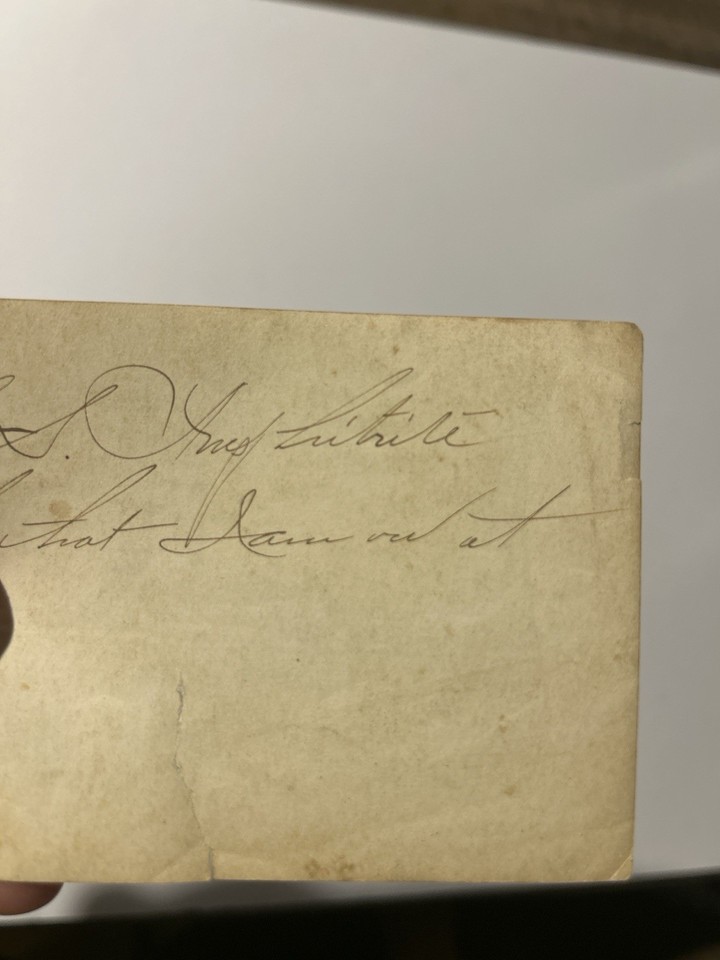 S. Amphitrite
that I am on at